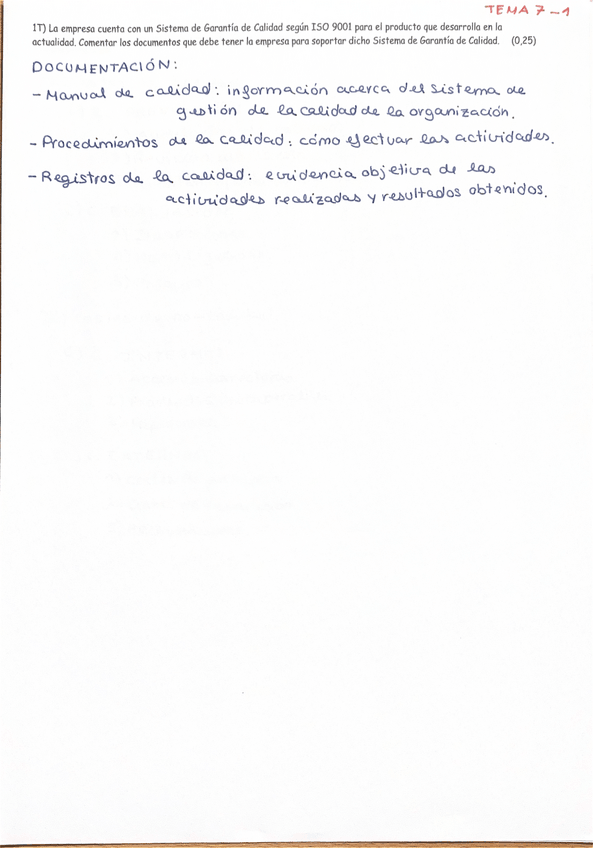 TEMA 7 - 1
1T) La empresa cuenta con un Sistema de Garantía de Calidad según ISO 9001 para el producto que desarrolla en la
actualidad. Comentar los documentos que debe tener la empresa para soportar dicho Sistema de Garantía de Calidad. (0,25)
DOCUMENTACIÓN:
- Manual de calidad: información acerca del sistema de
gestión de la calidad de la organización.
- Procedimientos de la calidad: cómo efectuar las actividades.
- Registros de la calidad: evidencia objetiva de las
actividades realizadas y resultados obtenidos.